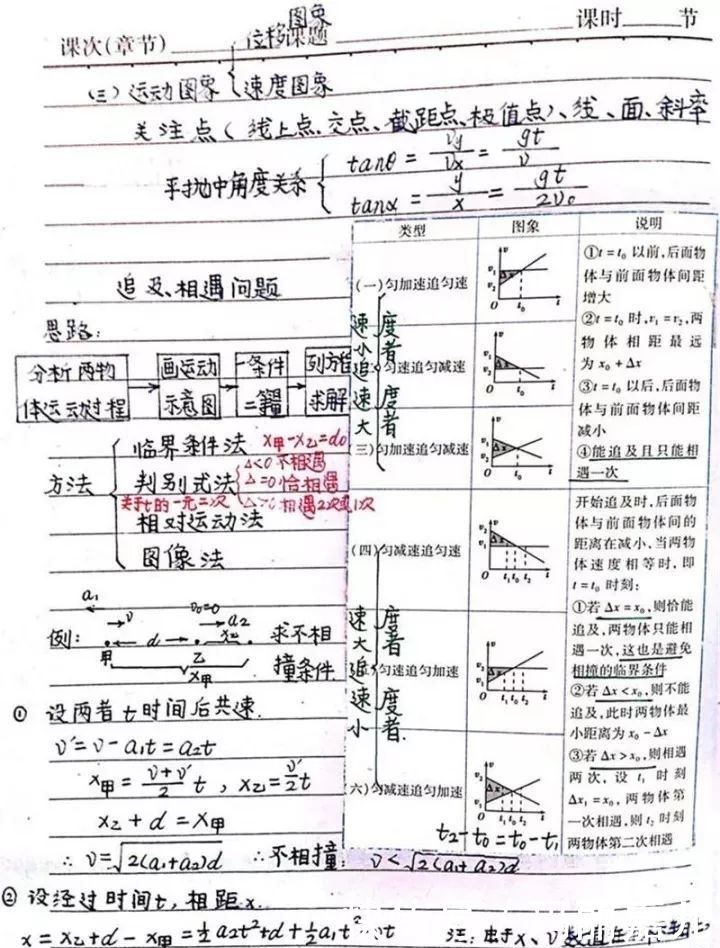 图象
课次(章节) 位移课题 课时 节
(三)运动图象 速度图象
关注点(线上点、交点、截距点、极值点)、线、面、斜率
平抛中角度关系
tanθ = vy/vx = gt/v
tanα = y/x = gt/2v₀
追及、相遇问题
思路:
分析两物体运动过程
画运动示意图
一条件二等量
列方程求解
方法
临界条件法 x甲-x乙=d₀
判别式法
关于t的一元二次
Δ<0 不相遇
Δ=0 恰相遇
Δ>0 相遇2次或1次
相对运动法
图像法
a₁ v v₀=0 a₂
例: 甲 d 乙 x乙 求不相
x甲 撞条件
① 设两者t时间后共速.
v'=v-a₁t=a₂t
x甲=(v+v')/2 t, x乙=v'/2 t
x乙+d=x甲
∴ v=√2(a₁+a₂)d ∴不相撞: v<√2(a₁+a₂)d
② 设经过时间t,相距x.
x=x乙+d-x甲=½a₂t²+d+½a₁t²-vt
类型 图象 说明
(一)匀加速追匀速
匀速追匀减速
(三)匀加速追匀减速
速度小者追速度大者
①t=t₀以前,后面物
体与前面物体间距
增大
②t=t₀时,v₁=v₂,两
物体相距最远
为x₀+Δx
③t=t₀以后,后面物
体与前面物体间距
减小
④能追及且只能相
遇一次
(四)匀减速追匀速
匀速追匀加速
(六)匀减速追匀加速
速度大者追速度小者.
t₂-t₀=t₀-t₁
开始追及时,后面物
体与前面物体间的
距离在减小,当两物
体速度相等时,即
t=t₀时刻:
①若Δx=x₀,则恰能
追及,两物体只能相
遇一次,这也是避免
相撞的临界条件
②若Δx<x₀,则不能
追及,此时两物体最
小距离为x₀-Δx
③若Δx>x₀,则相遇
两次,设t₁时刻
Δx₁=x₀,两物体第
一次相遇,则t₂时刻
两物体第二次相遇